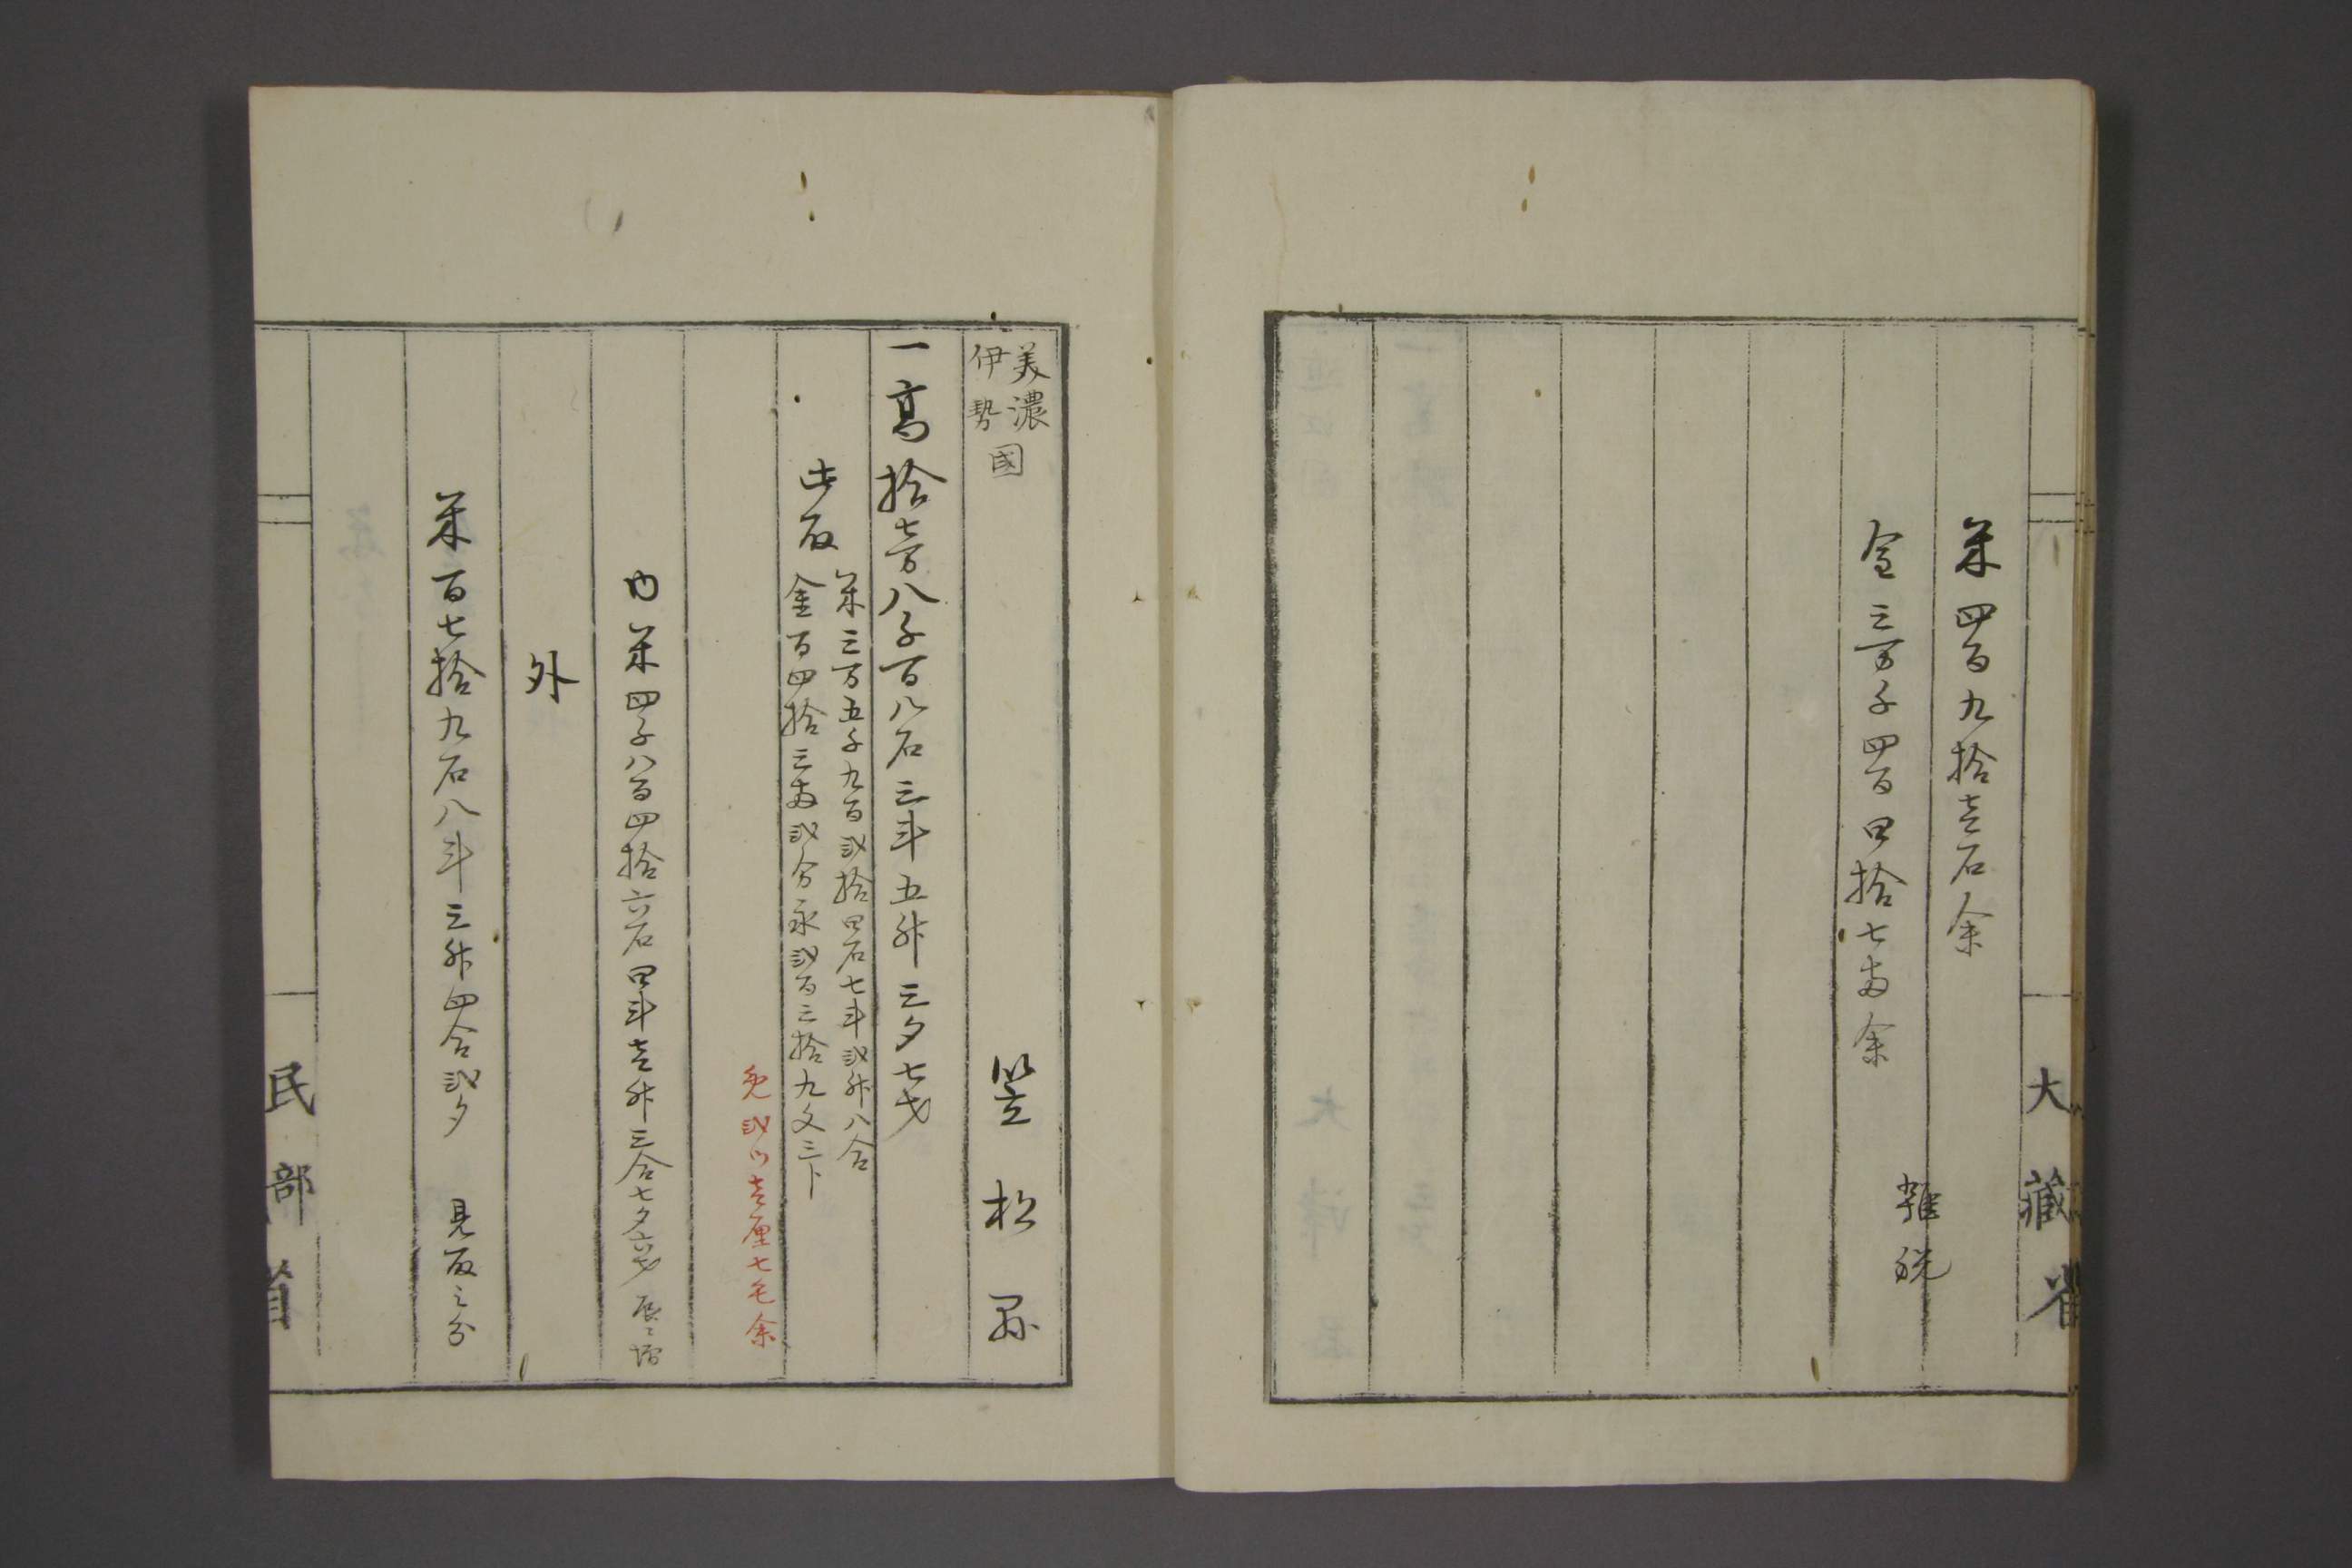 大藏省
米四百九拾壱石余
雑税
金三万千四百四拾七両余
美濃
伊勢
國
笠松縣
一高拾七万八千百八石三斗五升三夕七才
此取
米三万五千九百弐拾四石七斗弐升八合
金百四拾三両弐分永弐百三拾九文三分
免弐ツ壱厘七毛余
内米四千八百四拾六石四斗壱升三合七夕六才 辰ゟ増
外
米百七拾九石八斗三升四合弐夕 見取之分
民部省